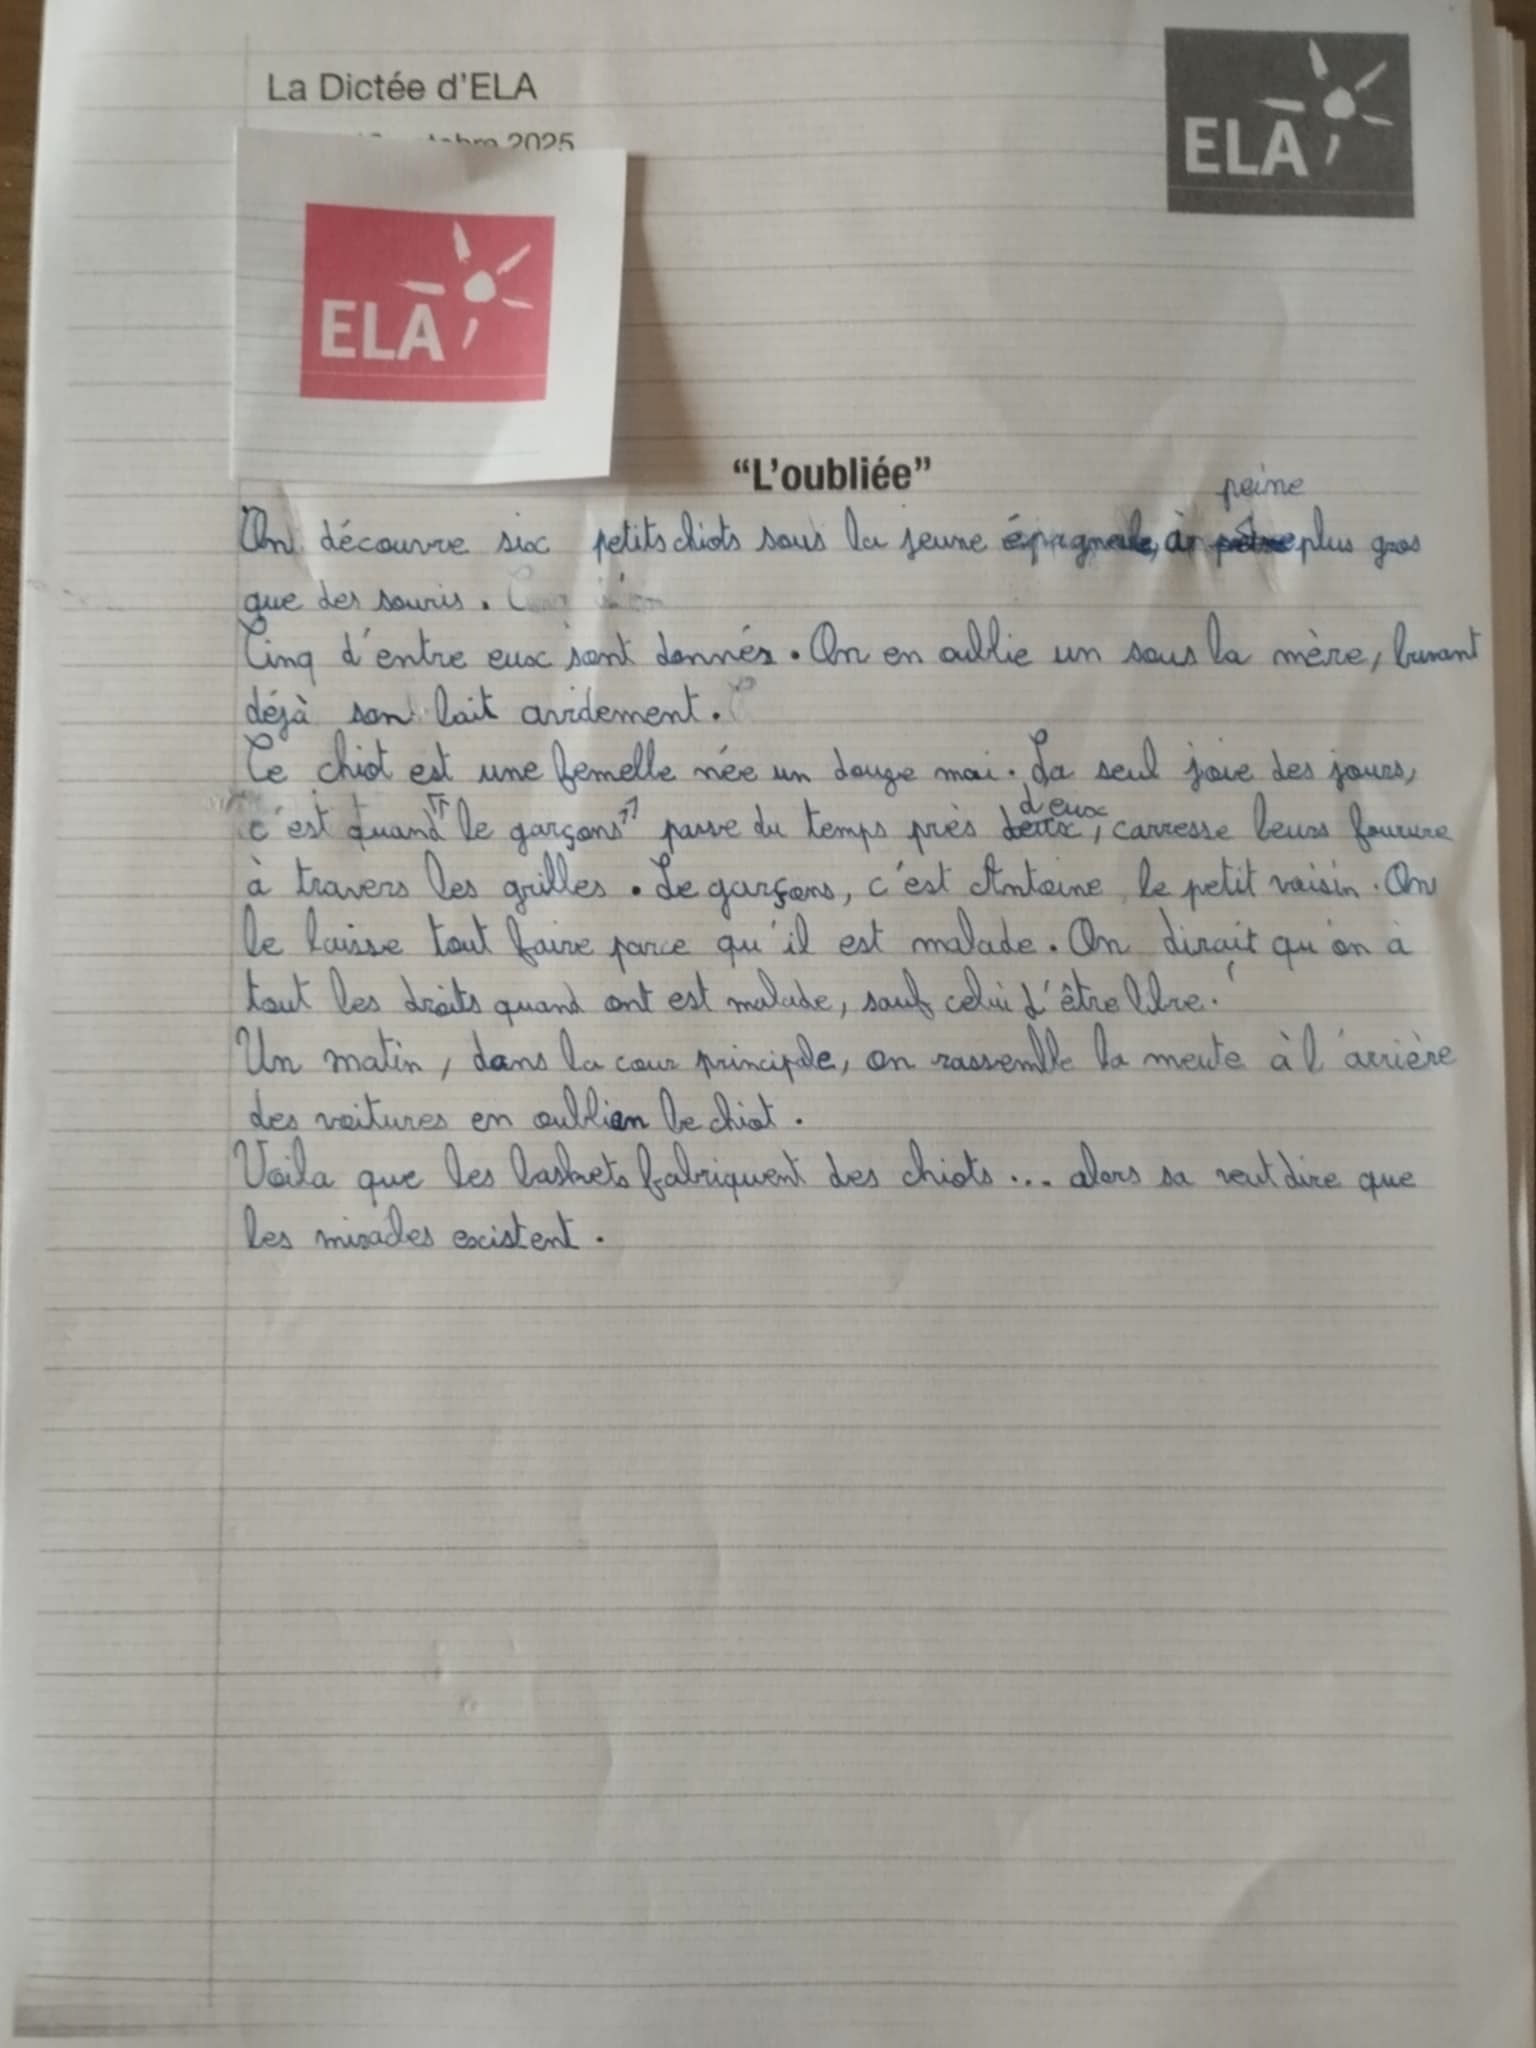 La Dictée d'ELA
octobre 2025
ELA
ELA
"L'oubliée"
peine
On découvre six petits chiots sous la jeune épagneule, à plus gros
que des souris.
Cinq d'entre eux sont donnés. On en oublie un sous la mère, buvant
déjà son lait avidement.
Ce chiot est une femelle née un douze mai. La seul joie des jours,
d'eux
c'est quand "le garçons" passe du temps près deux, carresse leurs fourure
à travers les grilles. Le garçons, c'est Antoine le petit voisin. On
le laisse tout faire parce qu'il est malade. On dirait qu'on à
tout les droits quand ont est malade, sauf celui d'être libre.
Un matin, dans la cour principale, on rassemble la meute à l'arrière
des voitures en oublian le chiot.
Voila que les baskets fabriquent des chiots... alors sa veut dire que
les miracles existent.